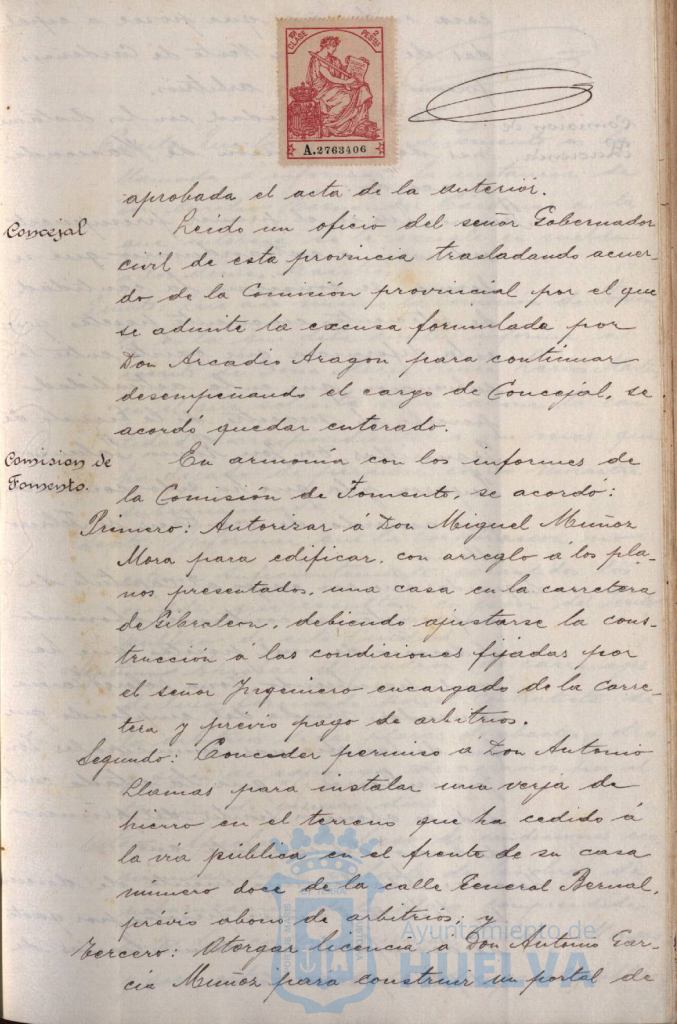 CLASE
2
PESTAS
A.2763406
aprobada el acta de la anterior.
Concejal
Leído un oficio del señor Gobernador
civil de esta provincia trasladando acuer-
do de la Comisión provincial por el que
se admite la excusa formulada por
Don Arcadio Aragon para continuar
desempeñando el cargo de Concejal, se
acordó quedar enterado.
Comision de
Fomento.
En armonía con los informes de
la Comisión de Fomento, se acordó:
Primero: Autorizar á Don Miguel Muñoz
Mora para edificar, con arreglo á los pla-
nos presentados, una casa en la carretera
de Gibraleon, debiendo ajustarse la cons-
trucción á las condiciones fijadas por
el señor Ingeniero encargado de la carre-
tera y prévio pago de arbitrios.
Segundo: Conceder permiso á Don Antonio
Llamas para instalar una verja de
hierro en el terreno que ha cedido á
la vía pública en el frente de su casa
número doce de la calle General Bernal,
prévio abono de arbitrios; y
Tercero: Otorgar licencia a Don Antonio Gar-
cía Muñoz para construir un portal de
Ayuntamiento de
HUELVA